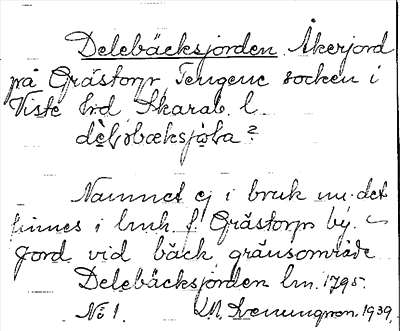 Delebäcksjorden Åkerjord
på Grästorp, Tengene socken i
Viste hrd, Skarab. l.
Namnet ej i bruk nu. det
finnes i lmh. f. Grästorps by.
Jord vid bäck gränsområde
Delebäcksjorden lm. 1795.
No 1. M. 1939.